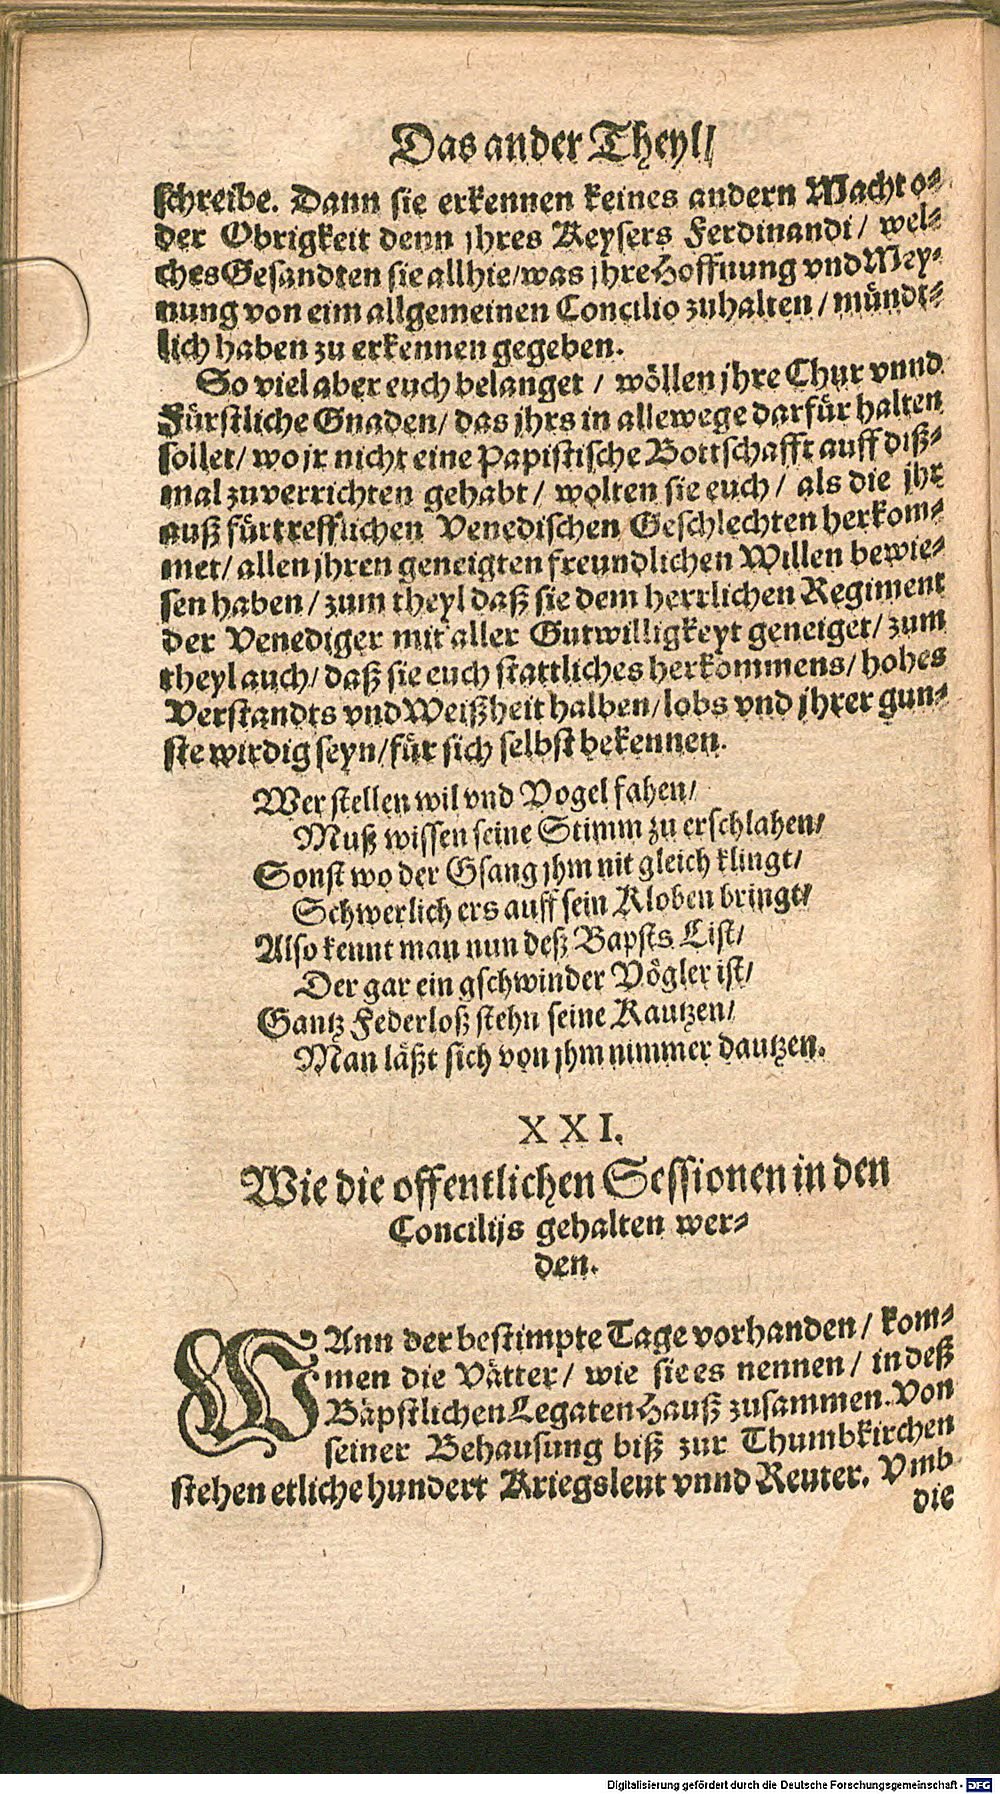 Das ander Theyl/
schreibe. Dann sie erkennen keines andern Macht o-
der Obrigkeit denn jhres Keysers Ferdinandi / wel-
ches Gesandten sie allhie/was jhre Hoffnung vnd Mey-
nung von eim allgemeinen Concilio zuhalten / mündt-
lich haben zu erkennen gegeben.
So viel aber euch belanget / wöllen jhre Chur vnnd
Fürstliche Gnaden/ das jhrs in allewege darfür halten
sollet/ wo jr nicht eine Papistische Bottschafft auff diß-
mal zuverrichten gehabt / wolten sie euch / als die jhr
auß fürtrefflichen Venedischen Geschlechten herkom-
met/ allen jhren geneigten freundlichen Willen bewie-
sen haben / zum theyl daß sie dem herrlichen Regiment
der Venediger mit aller Gutwilligkeyt geneiget/ zum
theyl auch/ daß sie euch stattliches herkommens/ hohes
Verstandts vnd Weißheit halben/ lobs vnd jhrer gun-
ste wirdig seyn/für sich selbst bekennen.
Wer stellen wil vnd Vogel fahen/
Muß wissen seine Stimm zu erschlahen/
Sonst wo der Gsang jhm nit gleich klingt/
Schwerlich ers auff sein Kloben bringt/
Also kennt man nun deß Bapsts List/
Der gar ein gschwinder Vögler ist/
Gantz Federloß stehn seine Kautzen/
Man läßt sich von jhm nimmer dautzen.
XXI.
Wie die offentlichen Sessionen in den
Concilijs gehalten wer-
den.
WAnn der bestimpte Tage vorhanden / kom-
men die Vätter / wie sie es nennen / in deß
Bäpstlichen Legaten Hauß zusammen. Von
seiner Behausung biß zur Thumbkirchen
stehen etliche hundert Kriegsleut vnnd Reuter. Vmb
die
Digitalisierung gefördert durch die Deutsche Forschungsgemeinschaft - DFG